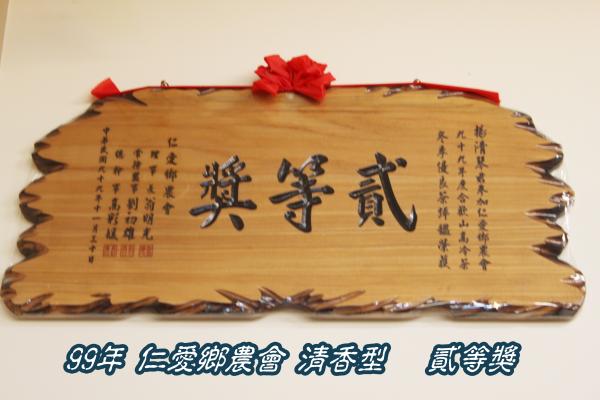 楊清琴君參加仁愛鄉農會
九十九年度合歡山高冷茶
冬季優良茶評鑑榮獲
貳等獎
仁愛鄉農會
理事長翁明光
常務監事劉初雄
總幹事高彩媛
中華民國九十九年十一月三十日
99年 仁愛鄉農會 清香型 貳等獎